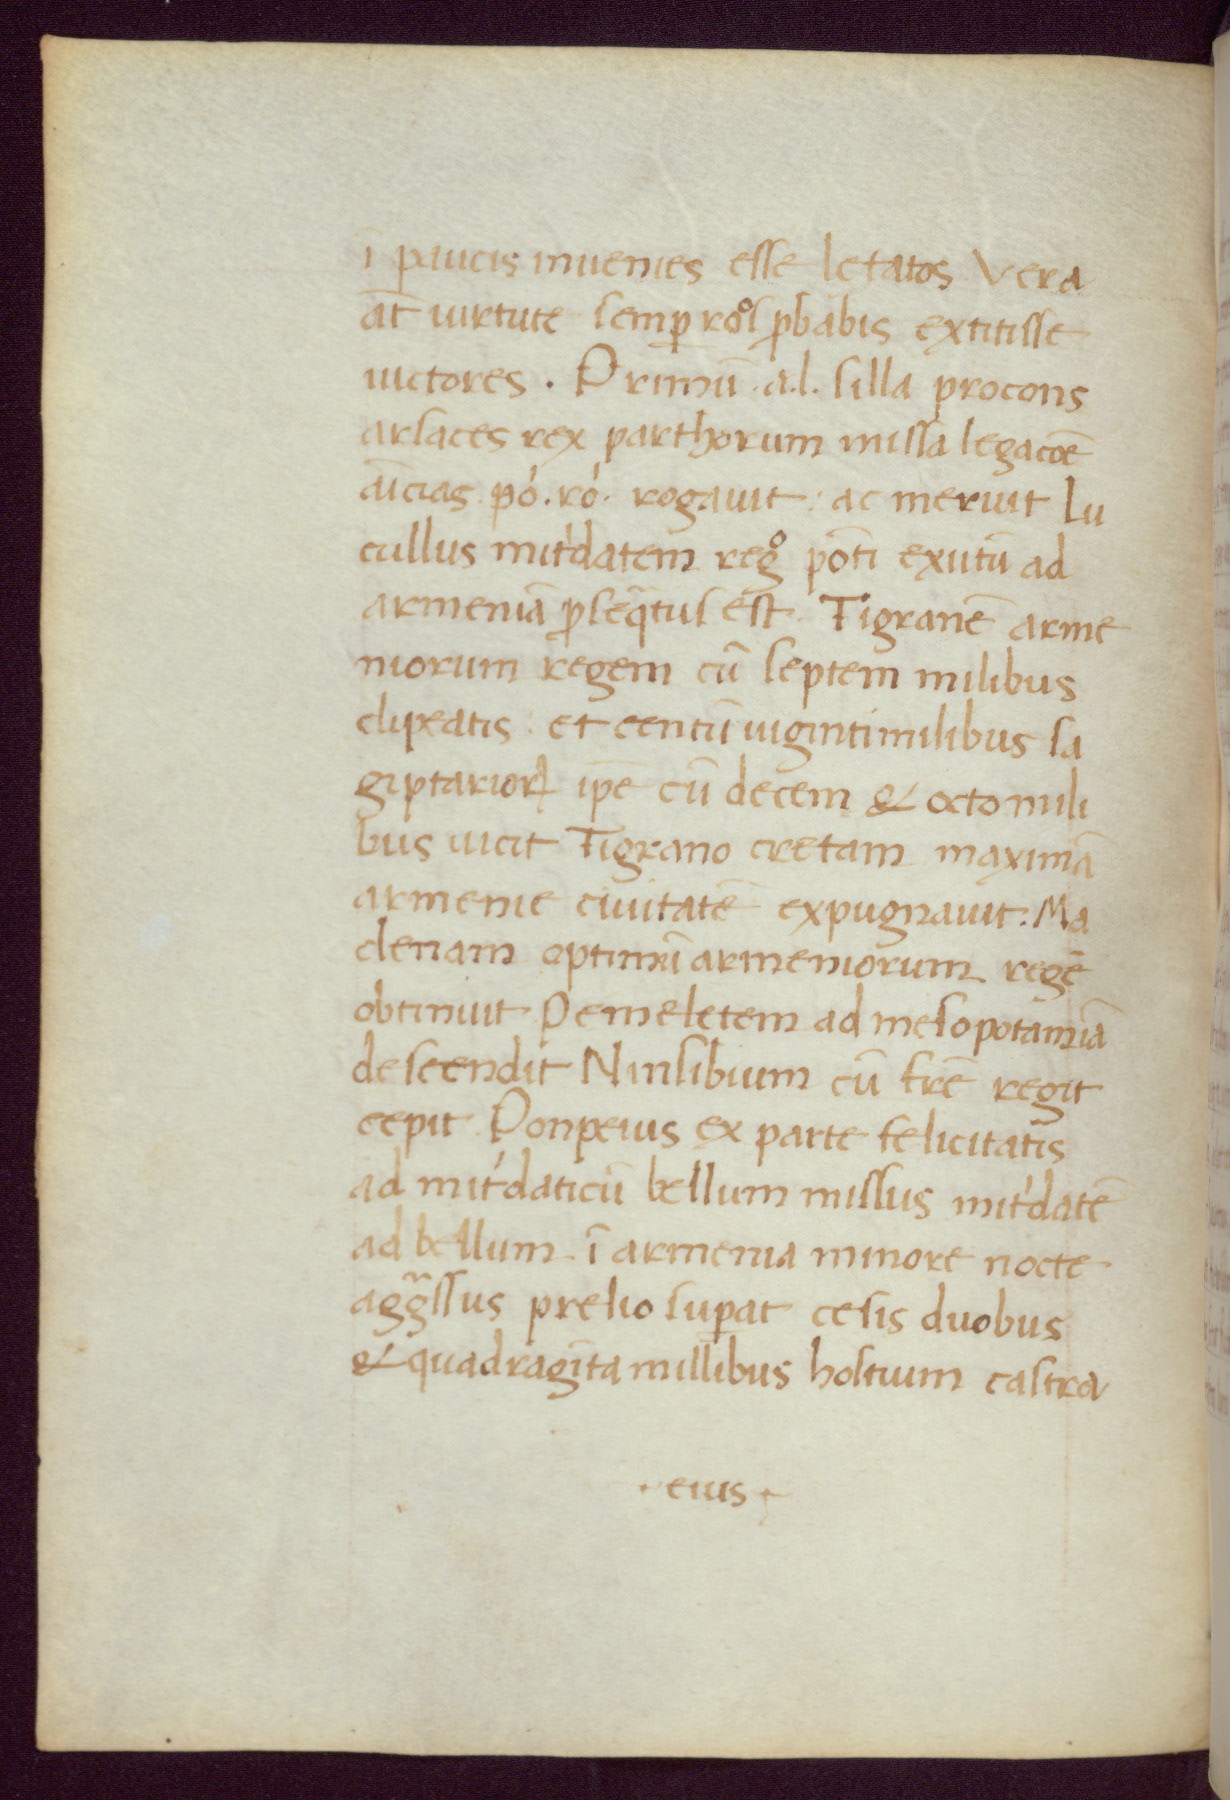 ī paucis inuenies esse letatos Vera
at̄ uirtute semꝑ roͦs ꝓbabis extitisse
uictores . Primū .a.l. silla procons
arsaces rex parthorum missa legacōe
aīcias pó.ró. rogauit : ac meruit Lu
cullus mit'datem regͦ pōti exutū ad
armeniā ꝑseq̄tus est . Tigranē arme
niorum regem cū septem milibus
clipeatis : et centū uiginti milibus sa
giptarioꝝ ip̄e cū decem & octo mili
bus uicit Tigrano cretam maximā
armenie ciuitatē expugnauit : Ma
denam optimā armeniorum regē
obtinuit Pemeletem ad mesopotamiā
descendit Ninsibium cū fr̄e regit
cepit . Ponpeius ex parte felicitatis
ad mit'daticū bellum missus mit'datē
ad bellum ī armenia minore nocte
agg̃ssus prelio suꝑat cesis duobus
& quadragīta millibus hostium castra
· eius ·